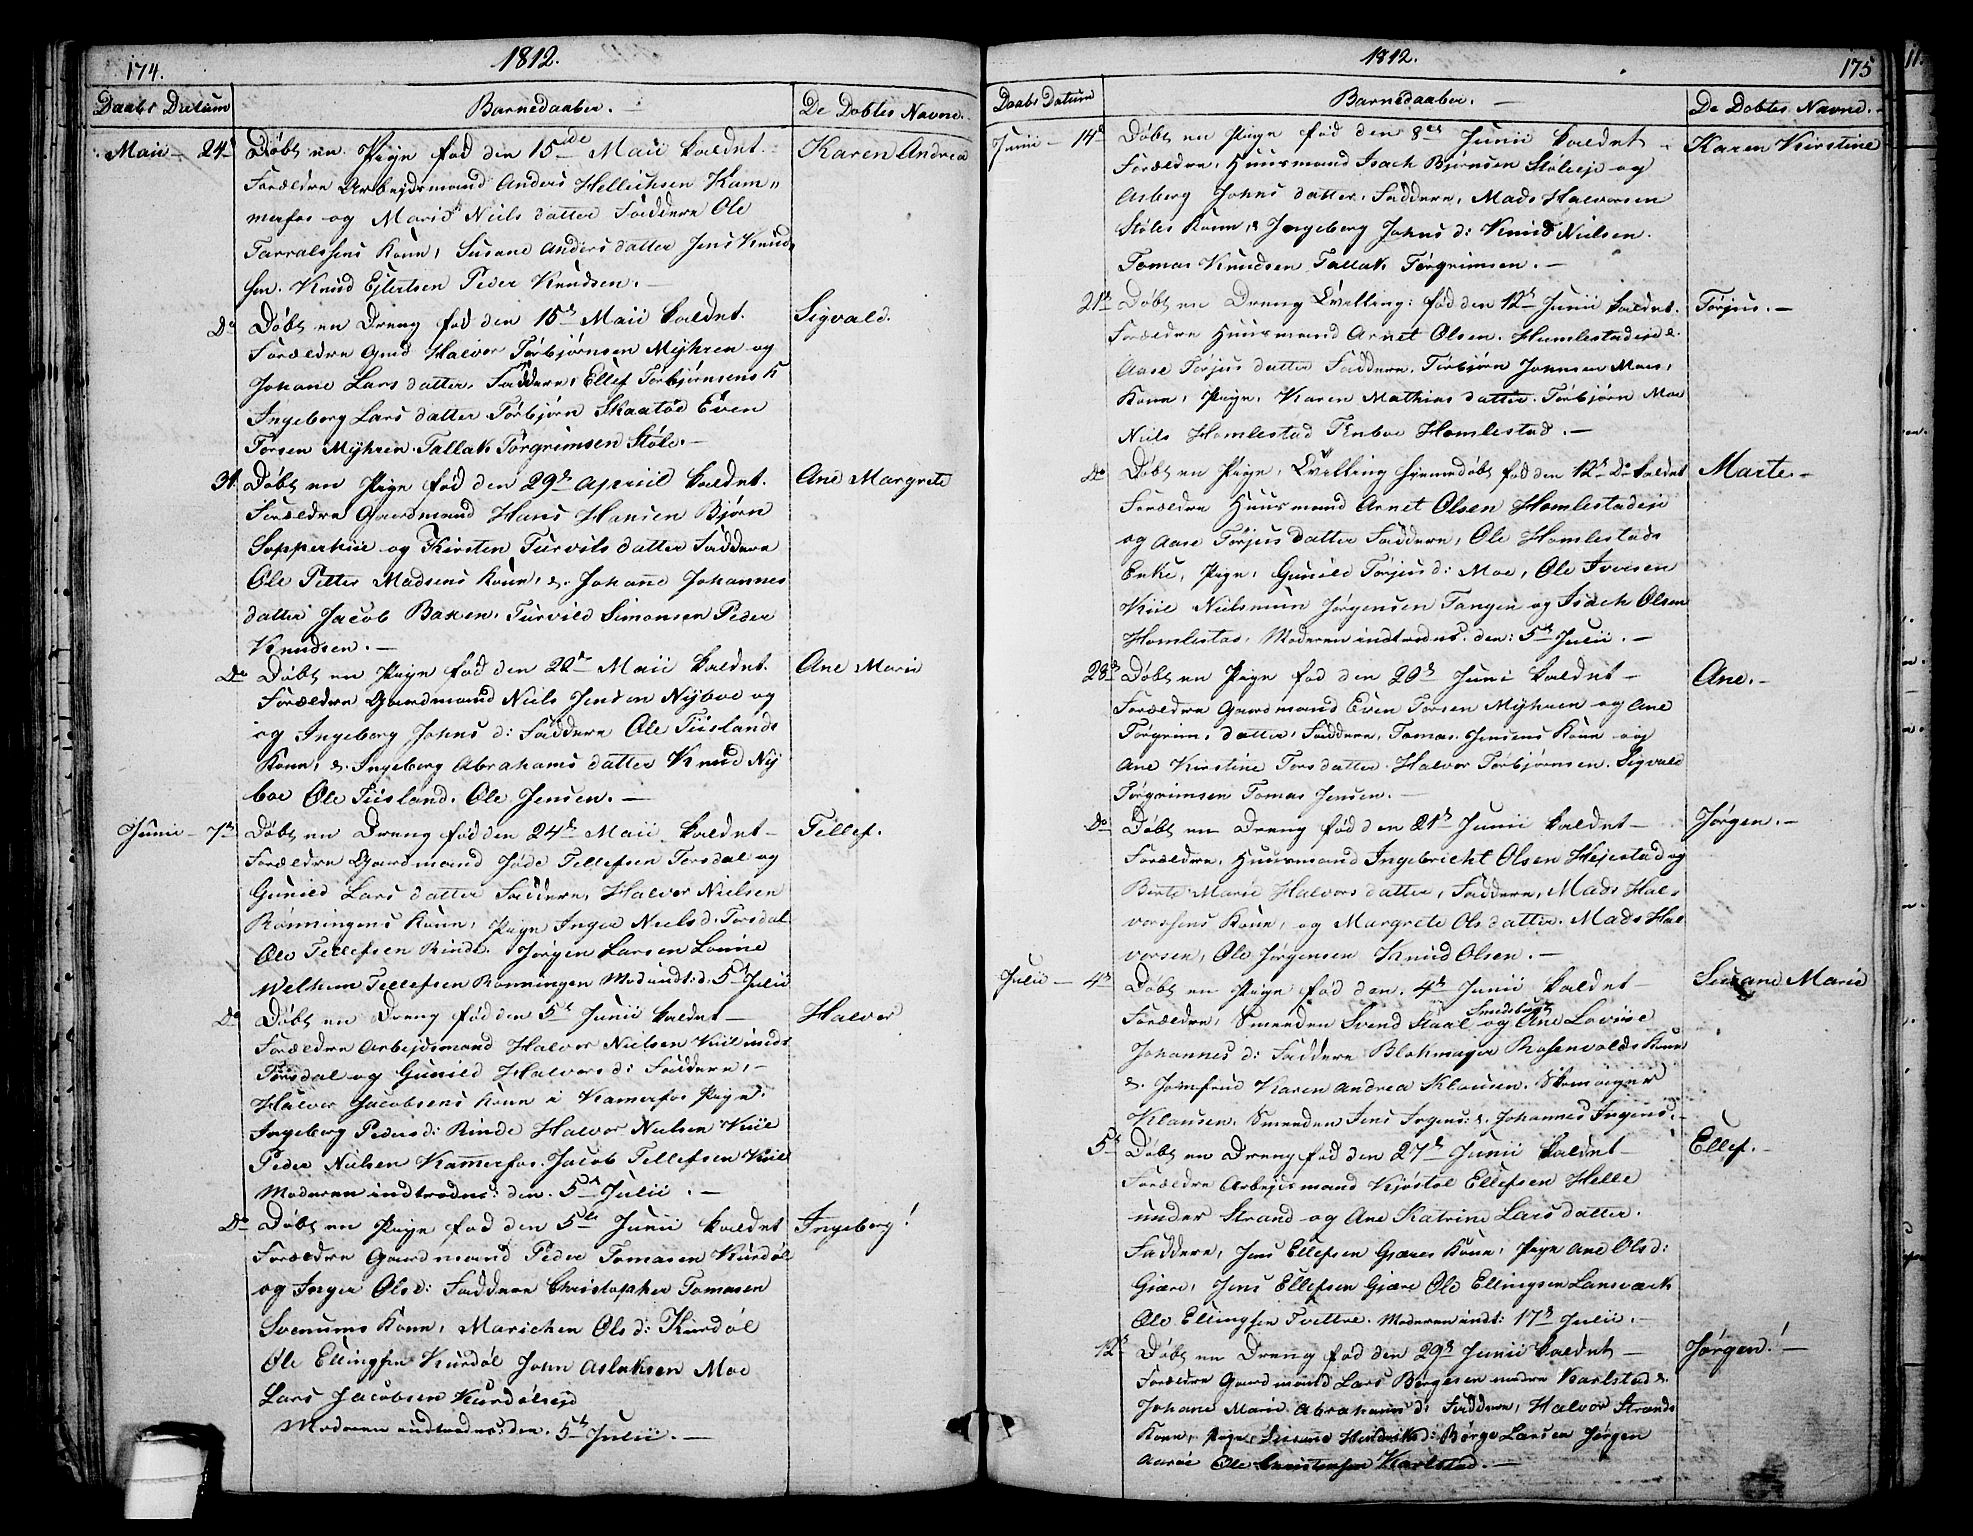 174.
1812.
Daabs Datum
Barnedaaber.
De Døbtes Navne.
Maii — 24de
Døbt en Pige fød den 15de Maii kaldet
Karen Andrea
Forældre Arbejdsmand Anders Hellichsen Kam„
merfos og Marie Niels datter Faddere Ole
Tarralssens Kone, Susane Anders datter Jens Knud
sen. Knud Ejlertsen Peder Knudsen. —
Do Døbt en Dreng fød den 15de Maii kaldet.
Sigvald.
Forældre Gmd Halvor Torbjørnsen Mÿhren og
Johane Lars datter. Faddere, Ellef Torbjørnsens K
Ingeborg Lars datter Torbjørn Skaatød Even
Torsen Mÿhren. Tallak Torgrimsen Støle. —
31. Døbt en Pige fød den 29de Apriil kaldet.
Ane Margrete
Forældre Gaardmand Hans Hansen Bjørn
og Kirsten Turvils datter Faddere
Ole Petter Madsens Kone, &. Johane Johannes
datter Jacob Baxen, Turvild Simonsen Peder
Knudsen. —
Do Døbt en Pige fød den 22de Maii kaldet.
Ane Marie
Forældre Gaardmand Niels Jensen Nÿboe og
og Ingeborg Johns d: Faddere Ole Tiislands
Kone, &. Ingeborg Abrahams datter Knud Nÿ
boe Ole Tiisland. Ole Jensen. —
Junii — 7de Døbt en Dreng fød den 24de Maii kaldet —
Tellef.
Forældre Gaardmand Jøde Tellefsen Torsdal og
Gunild Lars datter Faddere, Halvor Nielsen
Rønningens Kone, Pige Inger Niels d. Torsdal
Ole Tellefsen Rinde. Jørgen Larsen Lonne
Welhem Tellefsen Rønningen Mod indt: d. 5de Julii
Do Døbt en Dreng fød den 5de Junii kaldet —
Halvor
Forældre Arbejdsmand Halvor Nielsen Kiil
Torsdal og Gunild Halvors d: Faddere, —
Halvor Jacobsens Kone i Kamerfos Pige.
Ingeborg Peders d: Rinde Halvor Nielsen Kiil
Peder Nielsen Kamerfos. Jacob Tellefsen Kiil
Moderen indtrædes: den. 5de Julii. —
Do Døbt en Pige fød den 5te Junii kaldet
Ingeborg!
Forældre Gaardmand Peder Tomasen Kurdøl
og Inger Ols d: Faddere Christopher Tomasen
Svenums Kone, Marichen Ols d: Kurdøl
Ole Ellingsen Kurdøl John Aslaksen Moe
Lars Jacobsen Kurdølsejd
Moderen indtrædes: den. 5de Julii. —
1812.
175
Daabs Datum
Barnedaaber. —
De Døbtes Navne. —
Junii — 14de Døbt en Pige fød den 8de Junii kaldet —
Karen Kirstine
Forældre, Huusmand Isach Bjørnsen Støleeje og
Asberg Johns datter. Faddere, Mads Halvorsen
Støles Kone, & Ingeborg Johns d: Knud Nielsen.
Tomas Knudsen Tallak Torgrimsen. —
21de Døbt en Dreng Tvilling: fød den 12de Junii kaldet.
Torjus. —
Forældre Huusmand Arnet Olsen. Humlestadeje &.
Aase Torjus datter Faddere. Torbjørn Johnsen Moes,
Kone, Pige, Karen Mathias datter. Torbjørn Moe
Niels Homlestad Homlestad. —
Do Døbt en Pige, Tvilling hjemedøbt fød den 12de Do kaldet
Marte. —
Forældre Huusmand Arnet Olsen Homlestadeje
og Aase Torjus datter Faddere, Ole Homlestads
Enke, Pige, Gunild Torjus d: Moe, Ole Iversen
Kiil Nielsmun Jørgensen Tangen og Isach Olsen
Homlestad. Moderen indtrædes. den: 5de Julii. —
28de Døbt en Pige fød den 20de Juni kaldet —
Ane. —
Forældre Gaardmand Even Torsen Mÿhren og Ane
Torgrims datter, Faddere, Tomas Jensens Kone og
Ane Kirstine Tors datter. Halvor Torbjørnsen. Sigvald
Torgrimsen Tomas Jensen. —
Do Døbt en Dreng fød den 21de Junii kaldet —
Jørgen. —
Forældre, Huusmand Ingebricht Olsen Hejestad og
Birte Marie Halvors datter, Faddere, Mads Hal„
vorsens Kone, og Margrete Ols datter. Mads Hal
vorsen, Ole Jørgensen Knud Olsen. —
Julii — 4de Døbt en Pige fød den. 4de Junii kaldet —
Susane Marie
Smedsbugt
Forældre, Smeeden Svend Staal og Ane Lovise
Johannes d: Faddere Blokmager Rosenvolds Kone
&. Jomfrue Karen Andrea Klausen.
Klausen. Smeeden Jens Ingens: &. Johannes Ingens. —
5te Døbt en Dreng fød den 27de Junii kaldet —
Ellef. —
Forældre Arbejdsmand Kjøstol Ellefsen Helle
under Strand og Ane Katrine Lars datter.
Faddere, Jens Ellefsen Gjæres Kone, Pige Ane Ols d:
Gjære, Jens Ellefsen Gjære Ole Ellingsen Lansværk
Ole Ellingsen Tvettne. Moderen indt: 17de Julii. —
12te Døbt en Dreng fød den 29de Junii kaldet —
Jørgen! —
Forældre Gaardmand Lars Børgesen nedre Karlstad &.
Johane Marie Abrahams d: Faddere, Halvor Strands
Kone, Pige, Susane Hendrik d: Børge Larsen Jørgen
Aarøe Ole Christensen Karlstad. —